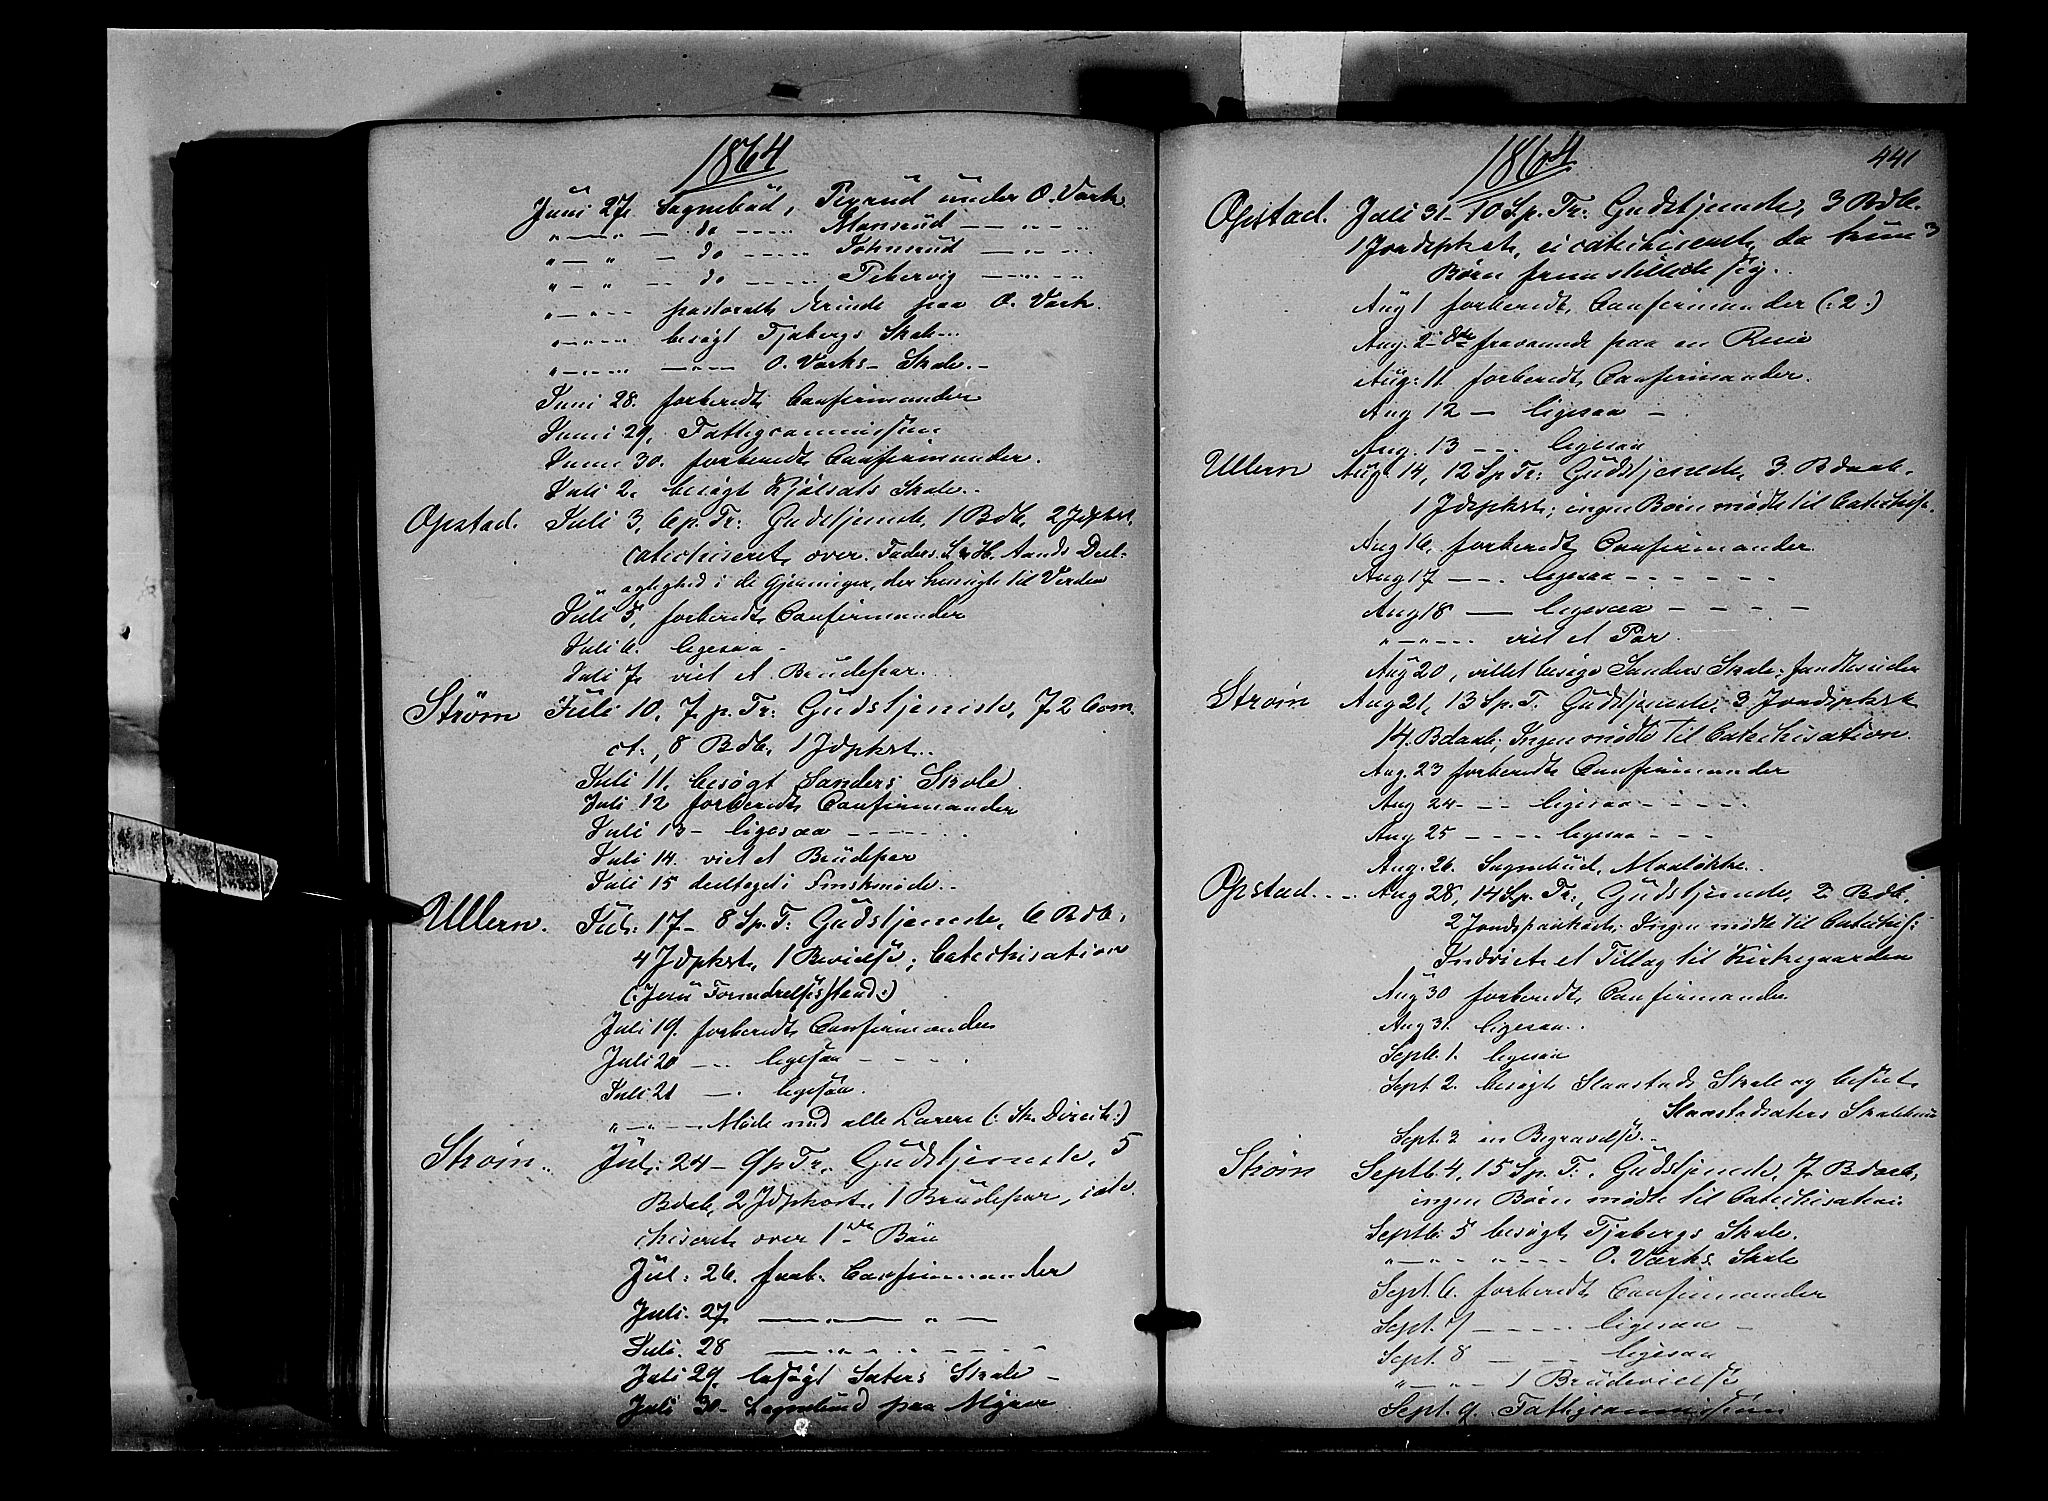 1864
Juni 27. Sognebud, Pegrud under O. Værk.
" — " — do — Monsrud — " —
" — " — do — Tohnsrud — " —
" — " — do — Pekervig — " —
" — " — pastoralt Ærinde paa O. Værk.
" — " — besøgt Tjabergs Skole —
" — " — — " — O. Værks – Skole. –
Juni 28. forberedt Confirmander
Juni 29, Fattigcommission
Juni 30. forberedt Confirmander.
Juli 2. besøgt Skole.
Opstad. Juli 3, 6 p. Tr: Gudstjeneste, 1 Bdb, 2 Jdpkst,
catechiseret over Faders, S. & H. Aands Deel-
agtighed i de Gjerninger, der henvigte til Verden
Juli 5, forberedt Confirmander
Juli 6. ligesaa –
Juli 7, viet et Brudepar.
Strøm Juli 10, 7 p. Tr: Gudstjeneste, 72 Com-
ct., 8 Bdb, 1 Jdpkst.
Juli 11. besøgt Sanders Skole
Juli 12 forberedt Confirmander
Juli 13 – ligesaa – – – –
Juli 14. viet et Brudepar
Juli 15 deeltaget i .
Ullern. Juli 17 – 8 Sp. T: Gudstjeneste, 6 Bdb,
4 Jdpkst, 1 Bevielse; Catechisation
(: Jesu Fornedrelsesstand :)
Juli 19. forberedt Confirmander
Juli 20 – – – ligesaa – – – –
Juli 21 — ligesaa.
" — " — Møde med alle Lærere (: Sk. Direct :)
Strøm. Juli 24 – 9 p Tr. Gudstjeneste, 5
Bdab, 2 Jdpkast, 1 Brudepar, cate-
chiseret over 1ste Bøn
Juli: 26. forb. Confirmander
Juli. 27 — " —
Juli. 28 — " —
Juli 29, besøgt Sæters Skole –
Juli 30 – Sognebud paa Myrer
1864 441
Opstad. Juli 31 – 10 Sp. Tr: Gudstjeneste, 3 Bdb.
1 Jordpkst, ei catechiseret, da kun 3
Børn fremstillede sig.
Aug 1 forberedt Confirmander (: 2 :)
Aug. 2 – 8de fraværende paa en Reise
Aug: 11. forberedt Confirmander.
Aug 12 — ligesaa —
Aug. 13 – – – ligesaa
Ullern Aug 14, 12 Sp. Tr: Gudstjeneste, 3 Bdaab.
1 Jdspkst; ingen Børn mødte til Catechise.
Aug 16, forberedt Confirmander.
Aug 17 – – – ligesaa – – – – – –
Aug 18 — ligesaa – – – –
" – " – – – viet et Par.
Aug 20, villet besøge Sanders Skole,
Strøm Aug 21, 13 Sp. T. Gudstjeneste; 3 Jordspkst
14. Bdaab; Ingen mødte til Catechisation.
Aug. 23 forberedt Confirmander
Aug 24 – – – ligesaa – – – –
Aug 25 – – – – ligesaa – – –
Aug. 26. Sognebud, Moeløkke.
Opstad. . . Aug 28, 14 Sp. Tr:, Gudstjeneste, 2 Bdb.
2 Jordspaakast; Ingen mødte til Catechis:
Indviet et Tillæg til Kirkegaarden
Aug 30 forberedt Confirmander
Aug 31. ligesaa.
Septb. 1. ligesaa
Sept 2. besøgt Slaastads Skole og beseet
Slaastadsæters
Sept. 3 en Begravelse. –
Strøm Septb. 4, 15 Sp. T., Gudstjeneste, 7 Bdaab,
ingen Børn mødte til Catechisation
Septb. 5 besøgt Tjabergs Skole.
" — " – " – – – O. Værks Skole
Sept. 6. forberedt Confirmander
Sept. 7 – – – – ligesaa –
Sept. 8 – – – ligesaa
" – " – – 1 Brudevielse
Sept. 9. Fattigcommission